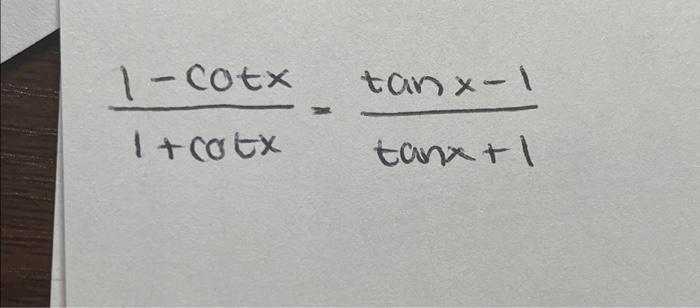 1 - cotx / 1 + cotx = tan x - 1 / tanx + 1